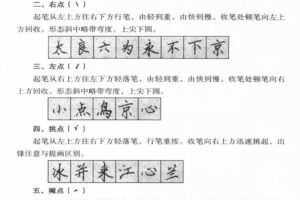 二、右点（丶）
起笔从左上方往右下方行笔、由轻到重、由快到慢、收笔处顿笔向左上
方回收。形态斜中略带弯度、上尖下圆。
太良六为永不下京
三、左点（㇒）
起笔从右上方往左下方轻落笔、由轻到重、由快到慢、收笔处顿笔向右
上方回收。形态斜中略带弯度、上尖下圆。
小点鸟京心
四、挑点（㇀）
起笔从左上方往右下方轻落笔、行笔重按、收笔向右上方迅速挑起、出
锋注意与提画区别。
冰并来江心兰
五、撇点（㇒）